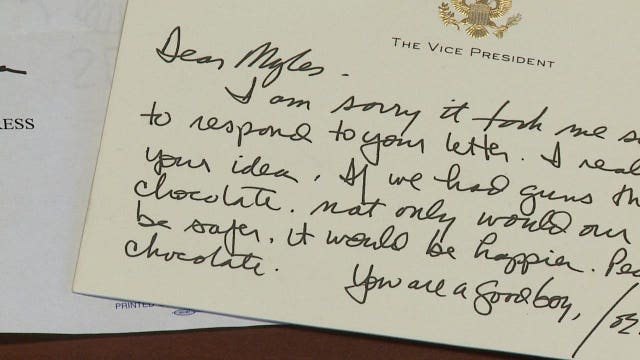 RESS
PRINTED
THE VICE PRESIDENT
Dear Myles.
I am sorry it took me s
to respond to your letter. I real
your idea. If we had guns th
chocolate. not only would our
be safer. it would be happier. Peo
chocolate.
You are a Good boy,